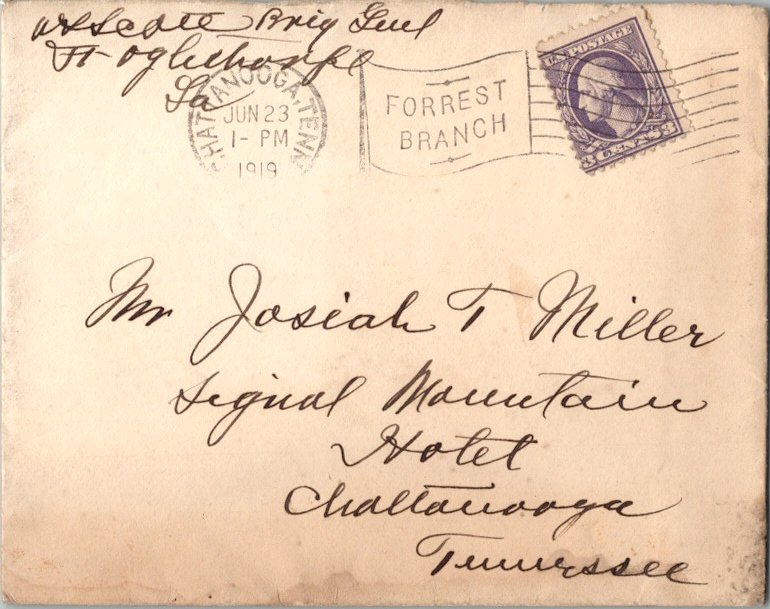 W S Scott Brig Genl
Ft Oglethorpe
Ga
CHATTANOOGA, TENN.
JUN 23
1- PM
1919
FORREST
BRANCH
U.S. POSTAGE
3 CENTS 3
Mr Josiah T Miller
Signal Mountain
Hotel
Chattanooga
Tennessee